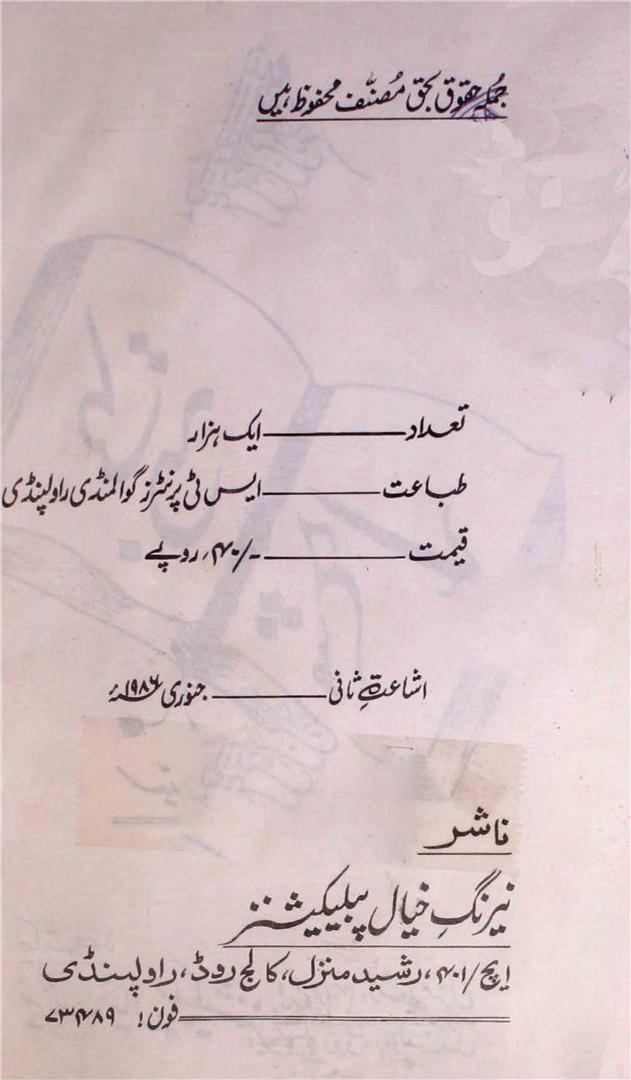 جملہ حقوق بحق مُصنّف محفوظ ہیں
تعداد ــــــ ایک ہزار
طباعت ــــــ ایس ٹی پرنٹرز گوالمنڈی راولپنڈی
قیمت ــــــ ۴۰/- روپے
اشاعتِ ثانی ــــــ جنوری ۱۹۸۶ء
ناشر
نیرنگِ خیال پبلیکیشنز
ایچ/۴۰۱، رشید منزل، کالج روڈ، راولپنڈی
فون: ۷۳۴۸۹